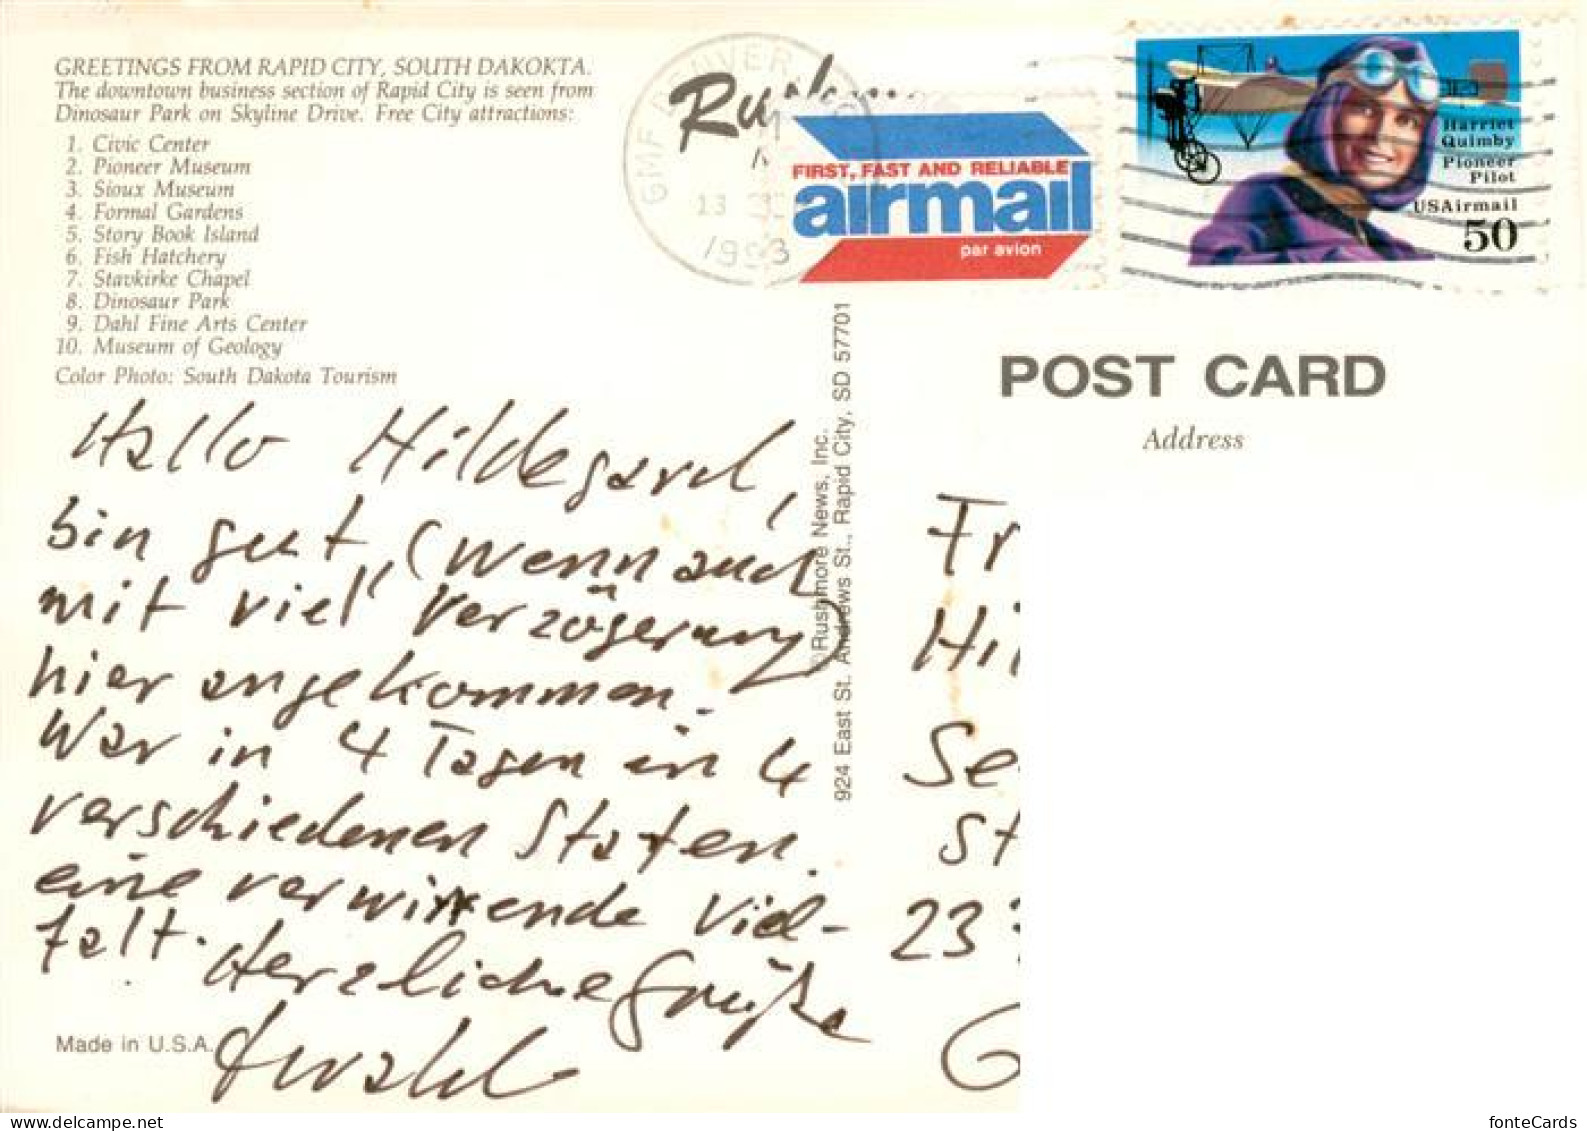 GREETINGS FROM RAPID CITY, SOUTH DAKOKTA.
The downtown business section of Rapid City is seen from
Dinosaur Park on Skyline Drive. Free City attractions:
1. Civic Center
2. Pioneer Museum
3. Sioux Museum
4. Formal Gardens
5. Story Book Island
6. Fish Hatchery
7. Stavkirke Chapel
8. Dinosaur Park
9. Dahl Fine Arts Center
10. Museum of Geology
Color Photo: South Dakota Tourism
Hallo Hildegard,
bin gut, (wenn auch
mit viel Verzögerung)
hier angekommen.
War in 4 Tagen in 4
verschiedenen Staaten.
eine verwirrende Viel-
falt. Herzliche Grüße
Made in U.S.A.
©Rushmore News, Inc.
924 East St. Andrews St., Rapid City, SD 57701
GMF DENVER
13
1993
FIRST, FAST AND RELIABLE
airmail
par avion
Harriet
Quimby
Pioneer
Pilot
USAirmail
50
POST CARD
Address
Fr
Hil
Se
St
23
G
fonteCards